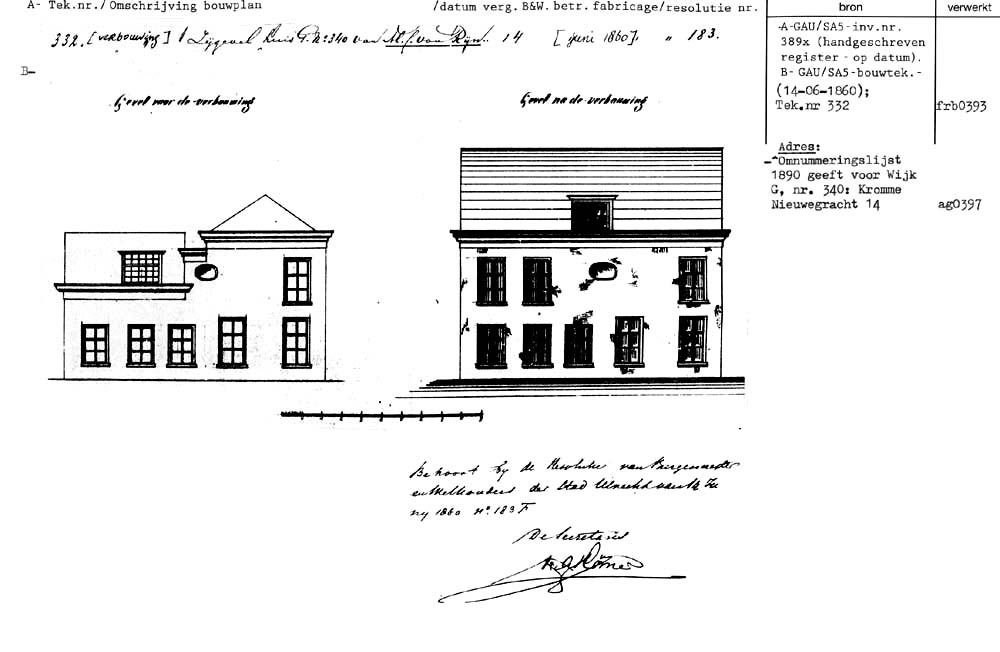 A- Tek.nr./ Omschrijving bouwplan /datum verg. B&W. betr. fabricage/resolutie nr.
bron verwerkt
332. [verbouwing] / Zijgevel Huis G. No 340 van M. J. van Rijn. 14 [juni 1860]. " 183.
A-GAU/SA5-inv.nr.
389x (handgeschreven
register - op datum).
B- GAU/SA5-bouwtek.-
(14-06-1860);
Tek.nr 332 frb0393
B-
Gevel voor de verbouwing
Gevel na de verbouwing
Adres:
-Omnummeringslijst
1890 geeft voor Wijk
G, nr. 340: Kromme
Nieuwegracht 14 ag0397
Behoort bij de Resolutie van Burgemeester
en Wethouders der Stad Utrecht van 14 Ju
nij 1860 No. 183 F
De Secretaris